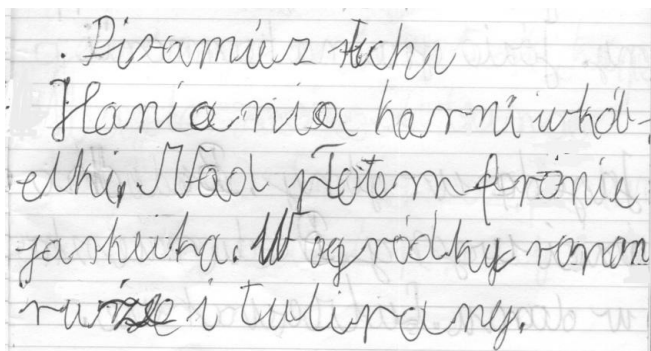 . Pisamiez słuchu
Hania nia karni wkób-
elki, Nad płotem frónie
jaskułka. W ogródky roron
rurze i tulipany.